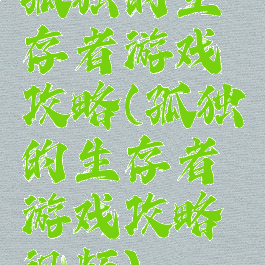 孤独的生
存者游戏
攻略(孤独
的生存者
游戏攻略
视频)